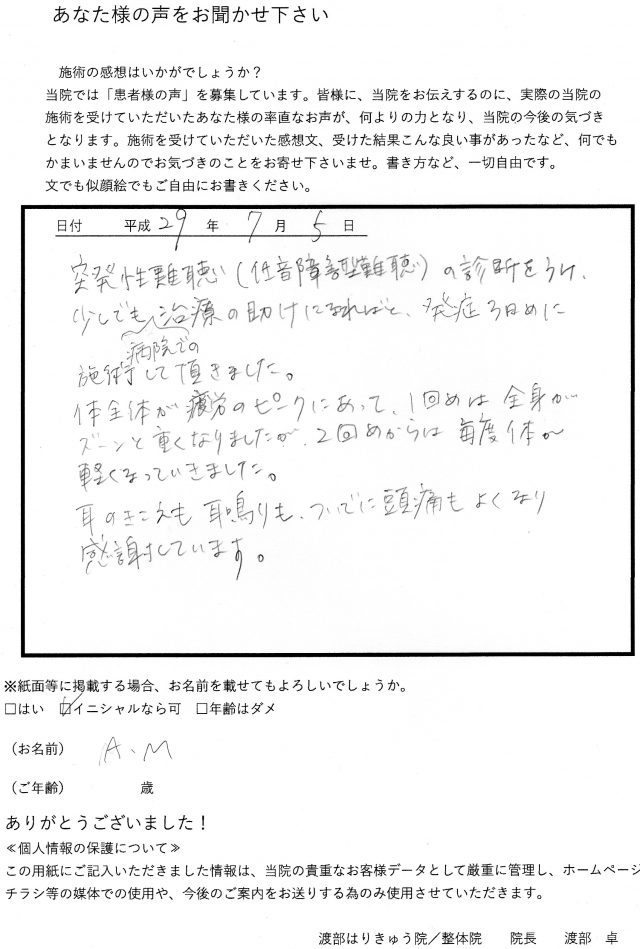 あなた様の声をお聞かせ下さい
施術の感想はいかがでしょうか？
当院では「患者様の声」を募集しています。皆様に、当院をお伝えするのに、実際の当院の
施術を受けていただいたあなた様の率直なお声が、何よりの力となり、当院の今後の気づき
となります。施術を受けていただいた感想文、受けた結果こんな良い事があったなど、何でも
かまいませんのでお気づきのことをお寄せ下さいませ。書き方など、一切自由です。
文でも似顔絵でもご自由にお書きください。
日付 平成 29 年 7 月 5 日
突発性難聴（低音障害型難聴）の診断をうけ、
少しでも治療の助けになればと、発症3日めに
病院での
施術して頂きました。
体全体が疲労のピークにあって、1回めは全身が
ズーンと重くなりましたが、2回めからは毎度体が
軽くなっていきました。
耳のきこえも耳鳴りも、ついでに頭痛もよくなり
感謝しています。
※紙面等に掲載する場合、お名前を載せてもよろしいでしょうか。
□はい ☑イニシャルなら可 □年齢はダメ
（お名前） A.M
（ご年齢） 歳
ありがとうございました！
≪個人情報の保護について≫
この用紙にご記入いただきました情報は、当院の貴重なお客様データとして厳重に管理し、ホームページ
チラシ等の媒体での使用や、今後のご案内をお送りする為のみ使用させていただきます。
渡部はりきゅう院／整体院 院長 渡部 卓